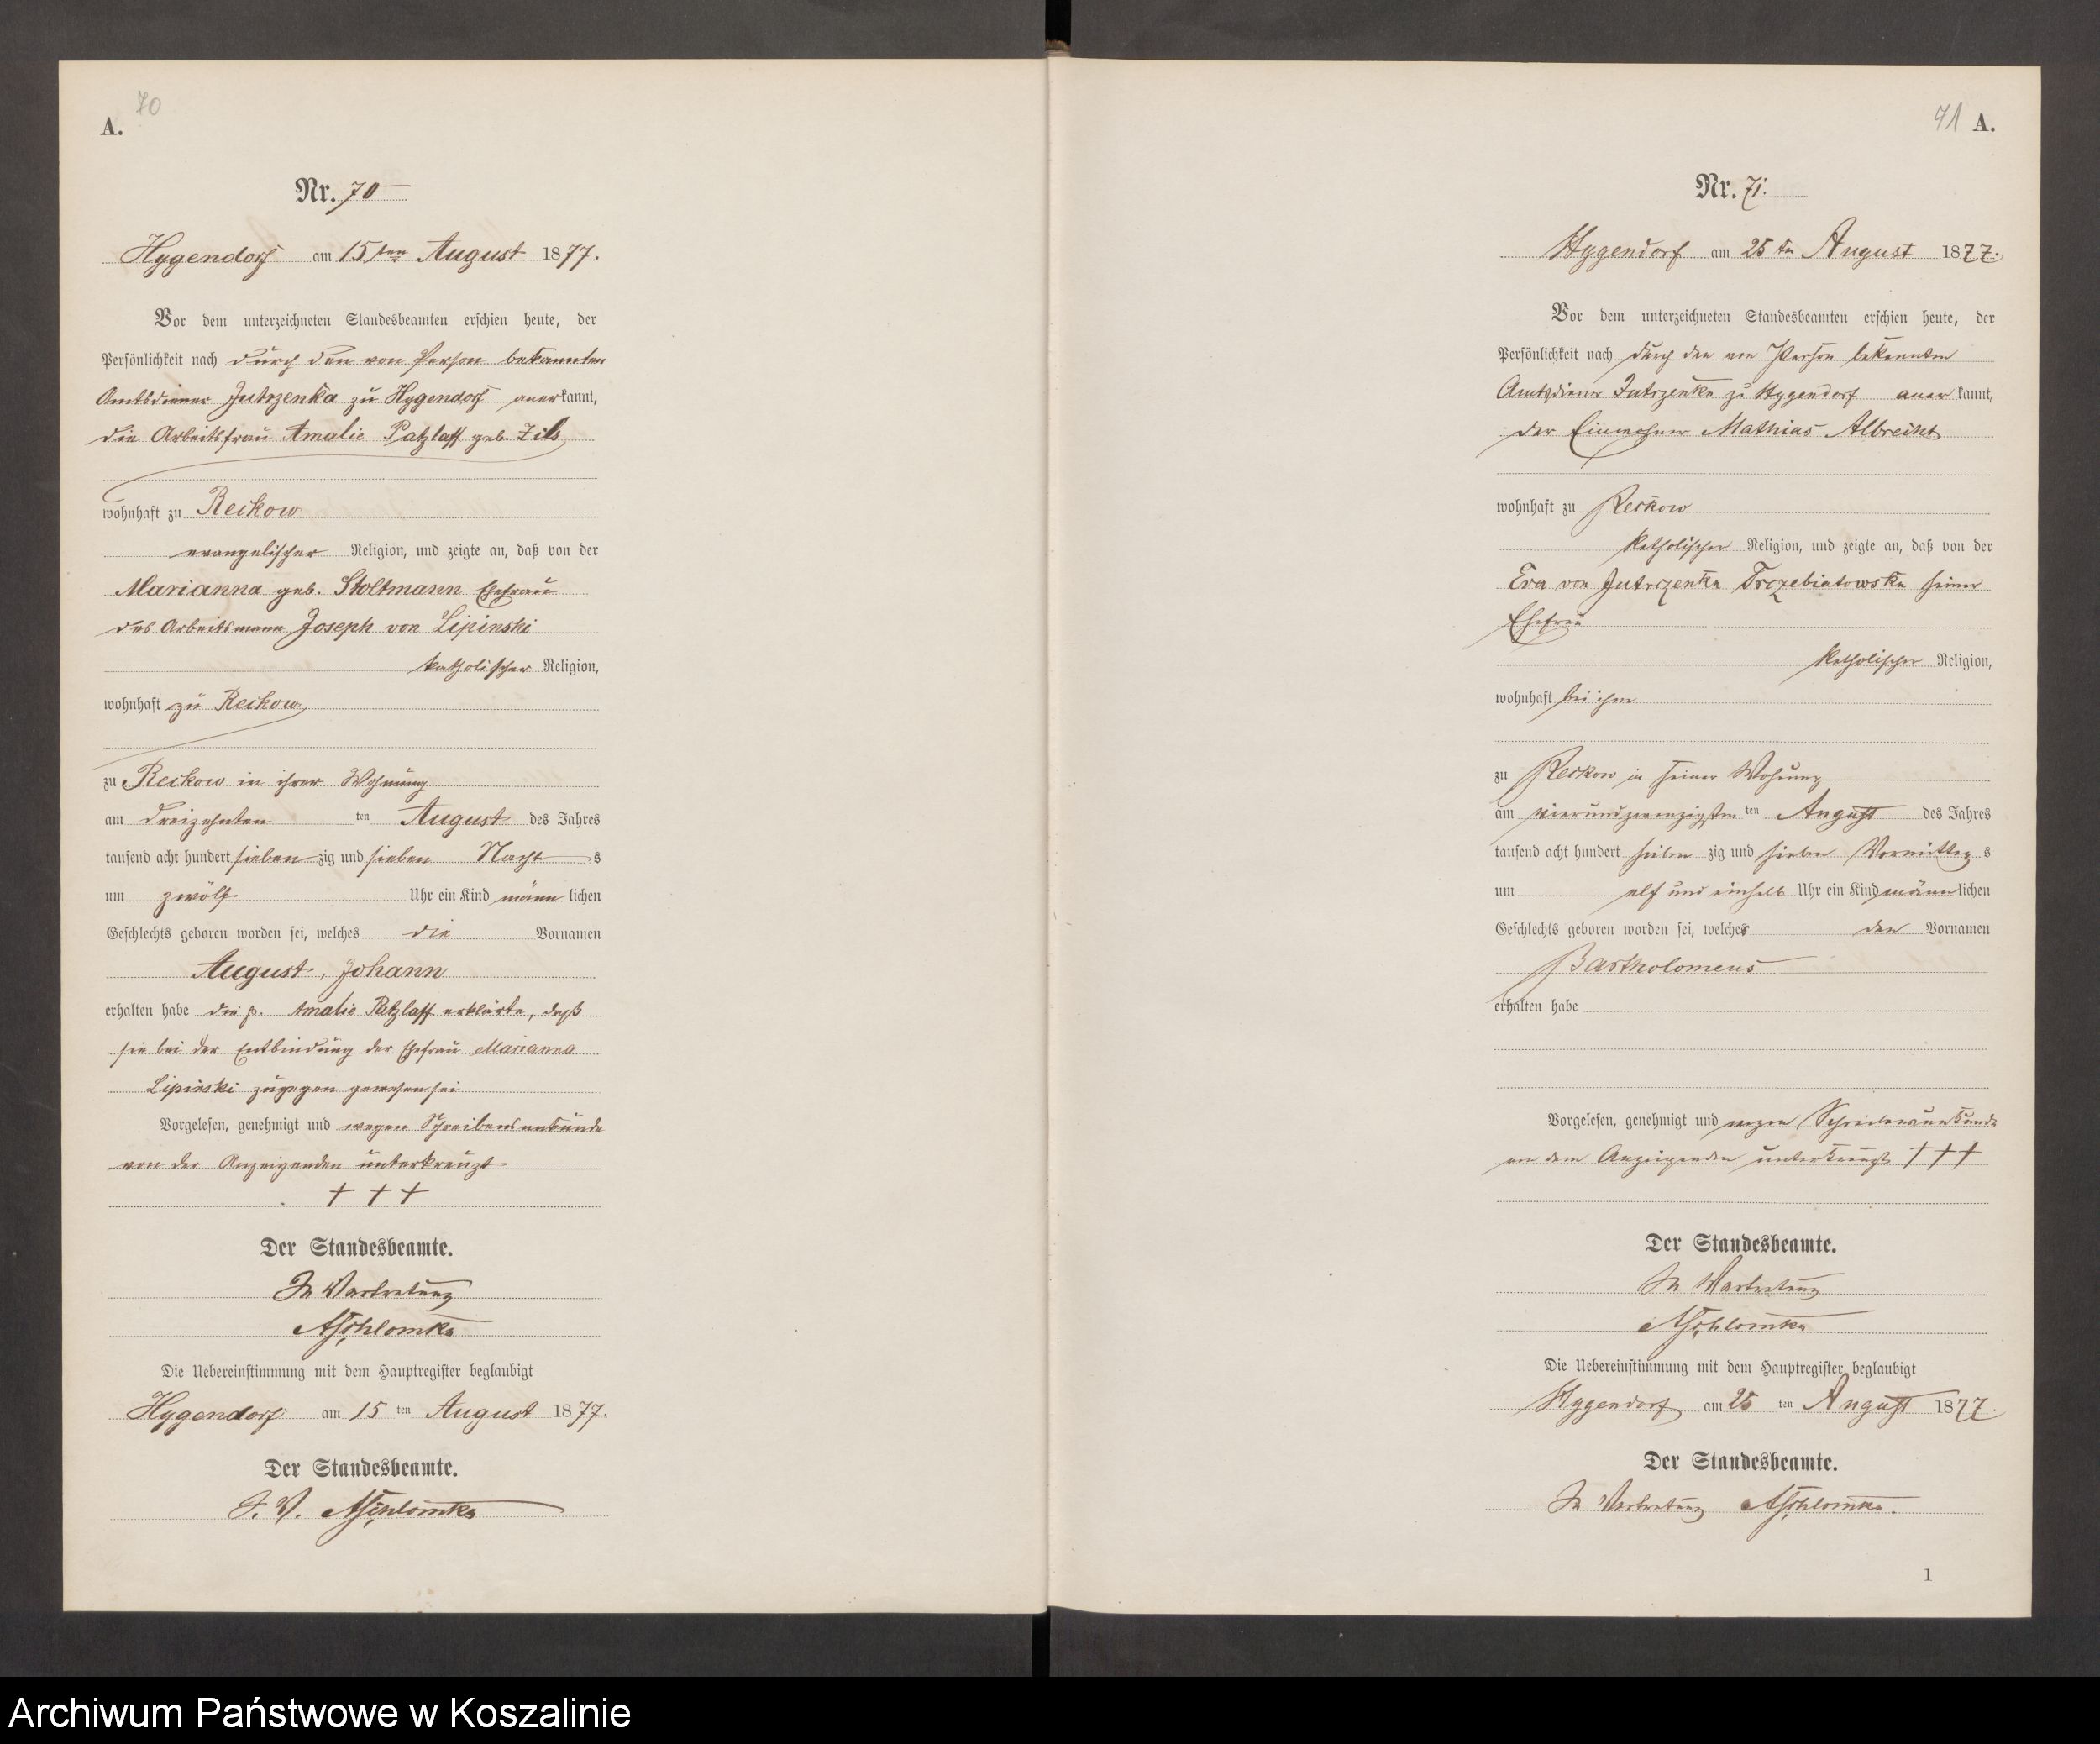 70
A.
Nr. 70
Hygendorf am 15ten August 1877.
Vor dem unterzeichneten Standesbeamten erschien heute, der
Persönlichkeit nach durch den von Person bekannten
Amtsdiener Jutrzenka zu Hygendorf anerkannt,
die Arbeitsfrau Amalie Patzlaff geb. Zils
wohnhaft zu Reckow
evangelischer Religion, und zeigte an, daß von der
Marianna geb. Stoltmann Ehefrau
des Arbeitsmann Joseph von Lipinski
katholischer Religion,
wohnhaft zu Reckow
zu Reckow in ihrer Wohnung
am dreizehnten ten August des Jahres
tausend acht hundert siebenzig und sieben Nachts
um zwölf Uhr ein Kind männlichen
Geschlechts geboren worden sei, welches die Vornamen
August, Johann
erhalten habe die p. Amalie Patzlaff erklärte, daß
sie bei der Entbindung der Ehefrau Marianna
Lipinski zugegen gewesen sei
Vorgelesen, genehmigt und wegen Schreibensunkunde
von der Anzeigenden unterkreuzt
+ + +
Der Standesbeamte.
In Vertretung
ASchlomka
Die Uebereinstimmung mit dem Hauptregister beglaubigt
Hygendorf am 15 ten August 1877.
Der Standesbeamte.
I. V. ASchlomka
71 A.
Nr. 71.
Hygendorf am 25 ten August 1877.
Vor dem unterzeichneten Standesbeamten erschien heute, der
Persönlichkeit nach durch den von Person bekannten
Amtsdiener Jutrzenka zu Hygendorf anerkannt,
der Einwohner Mathias Albrecht
wohnhaft zu Reckow
katholischer Religion, und zeigte an, daß von der
Eva von Jutrzenka Trzebiatowska seiner
Ehefrau
katholischer Religion,
wohnhaft bei ihm
zu Reckow in seiner Wohnung
am vierundzwanzigsten ten August des Jahres
tausend acht hundert siebenzig und sieben Vormittags
um elf und einhalb Uhr ein Kind männlichen
Geschlechts geboren worden sei, welches den Vornamen
Bartholomeus
erhalten habe
Vorgelesen, genehmigt und wegen Schreibensunkunde
von dem Anzeigenden unterkreuzt + + +
Der Standesbeamte.
In Vertretung
ASchlomka
Die Uebereinstimmung mit dem Hauptregister beglaubigt
Hygendorf am 25 ten August 1877.
Der Standesbeamte.
In Vertretung ASchlomka.
1
Archiwum Państwowe w Koszalinie